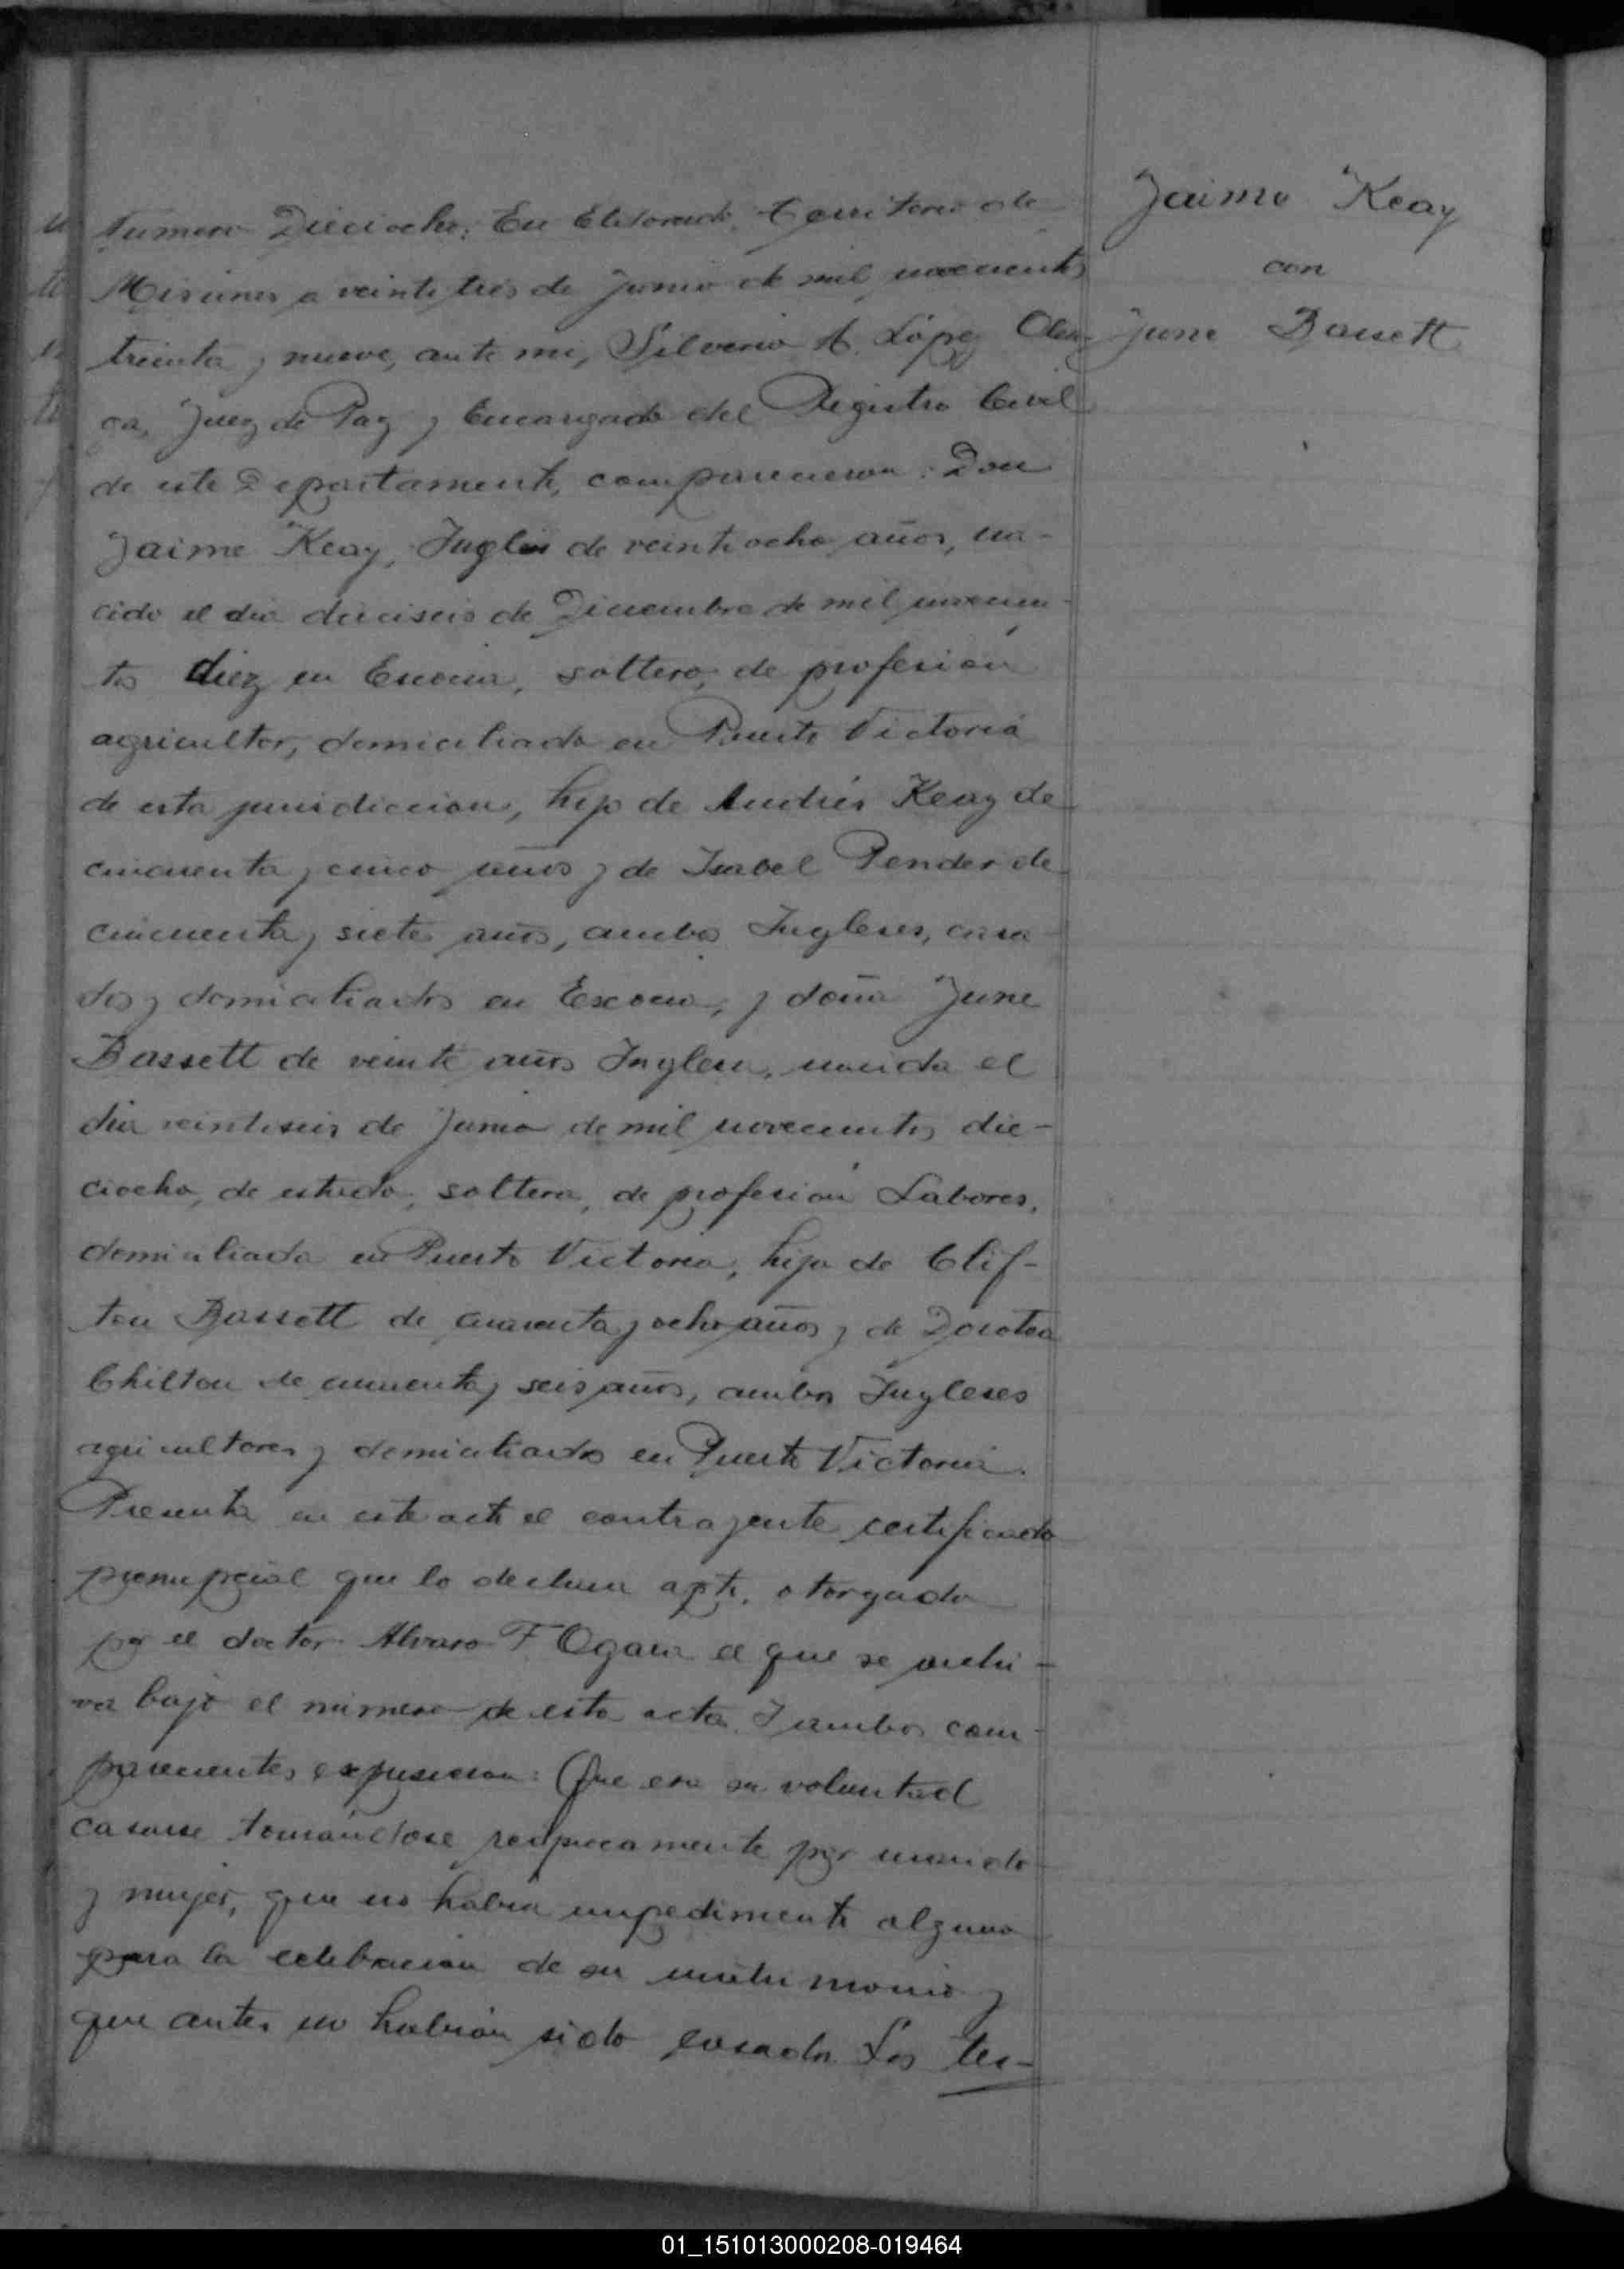 Jaime Keay
con
June Bassett
Número Dieciocho: En Eldorado, Territorio de
Misiones a veintitres de Junio de mil novecientos
treinta y nueve, ante mi, Silverio A. López
Juez de Paz y Encargado del Registro Civil
de este Departamento, comparecieron: Don
Jaime Keay, Ingles de veintiocho años, na-
cido el dia dieciseis de Diciembre de mil novecien-
tos diez en Escocia, soltero, de profesión
agricultor, domiciliado en Puerto Victoria
de esta jurisdiccion, hijo de Andrés Keay de
cincuenta y cinco años y de Isabel Pender de
cincuenta y siete años, ambos Ingleses, casa-
dos y domiciliados en Escocia, y doña June
Bassett de veinte años Inglesa, nacida el
dia veintiseis de Junio de mil novecientos die-
ciocho, de estado, soltera, de profesión Labores,
domiciliada en Puerto Victoria, hija de Clif-
ton Bassett de cuarenta y ocho años y de Dorotea
Chilton de cuarenta y seis años, ambos Ingleses
agricultores y domiciliados en Puerto Victoria.
Presenta en este acto el contrayente certificado
prenupcial que lo declara apto, otorgado
por el doctor Alvaro F. Ogara el que se archi-
va bajo el número de esta acta. Y ambos com-
parecientes expusieron: Que era su voluntad
casarse tomándose reciprocamente por marido
y mujer, que no habia impedimento alguno
para la celebracion de su matrimonio y
que antes no habian sido casados. Los tes-
01_151013000208-019464